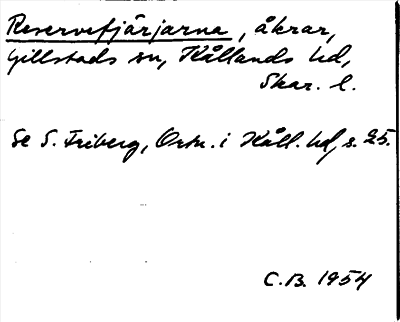 Reservefjärjarna, åkrar,
Gillstads sn, Kållands hd,
Skar. l.
Se S. Friberg, Ortn. i Kåll. hd, s. 25.
C.B. 1954